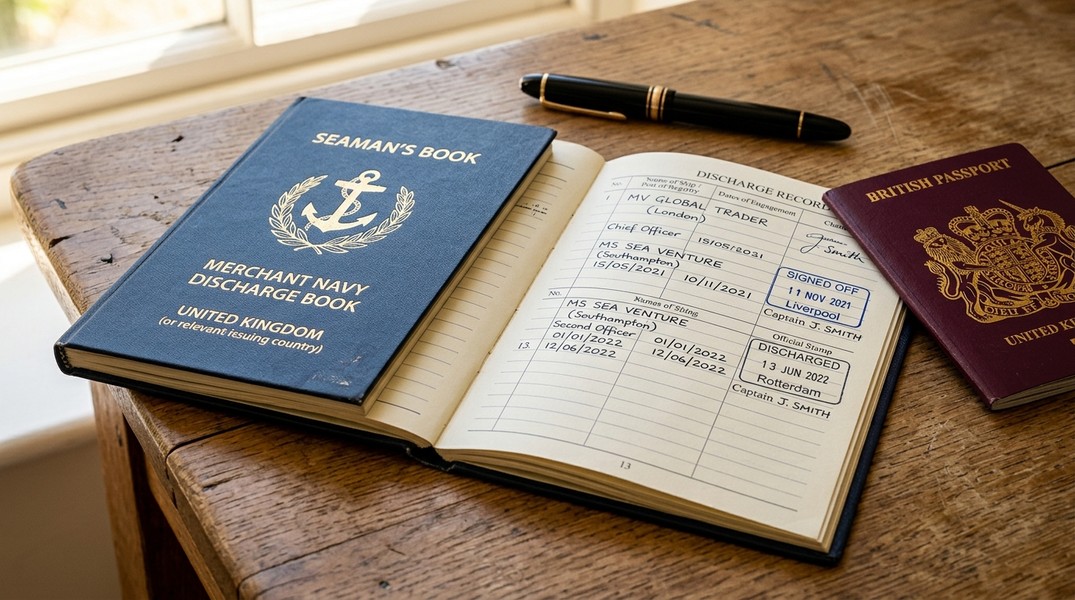 SEAMAN'S BOOK
MERCHANT NAVY
DISCHARGE BOOK
UNITED KINGDOM
(or relevant issuing country)
DISCHARGE RECOR
No.
Name of Ship /
Port of Registry
Dates of Engagement
1
MV GLOBAL TRADER
(London)
Chief Officer
15/05/2021
Smith
MS SEA VENTURE
(Southampton)
15/05/2021
10/11/2021
SIGNED OFF
11 NOV 2021
Liverpool
Captain J. SMITH
No.
Names of Shing
Official Stamp
MS SEA VENTURE
(Southampton)
Second Officer
13.
01/01/2022
01/01/2022
12/06/2022
12/06/2022
DISCHARGED
13 JUN 2022
Rotterdam
Captain J. SMITH
13
BRITISH PASSPORT
UNITED KI